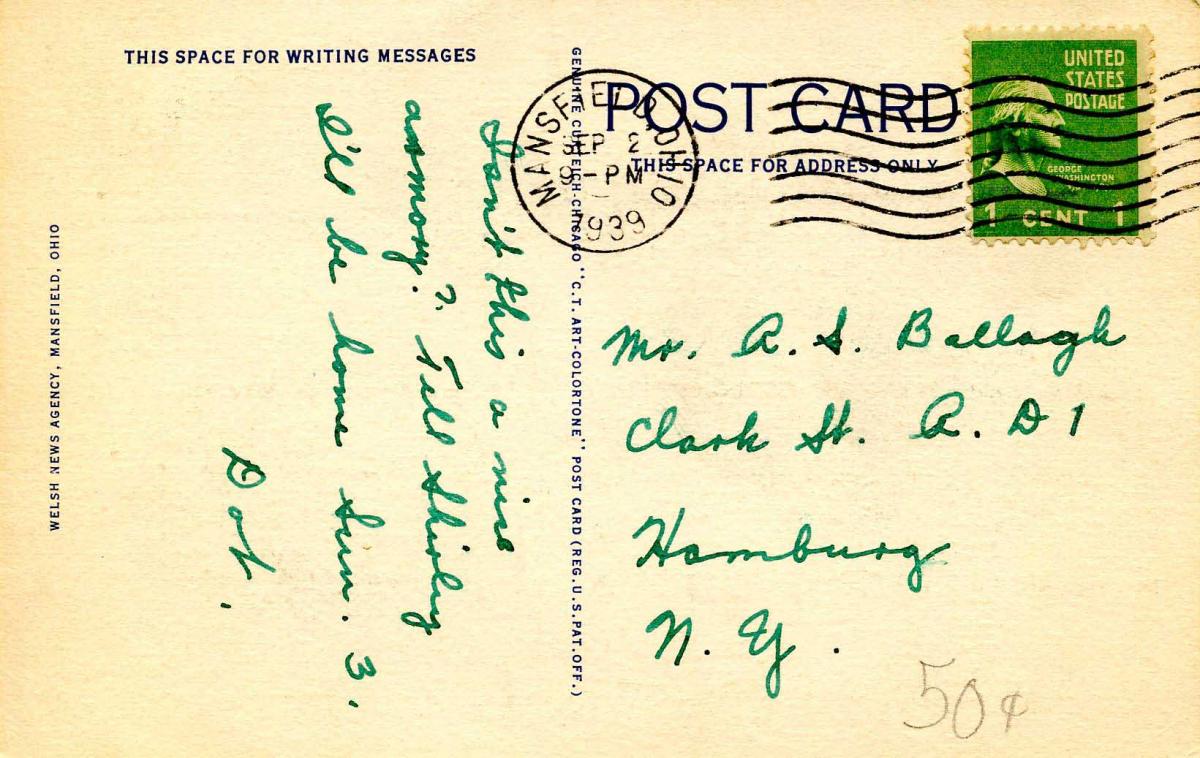 THIS SPACE FOR WRITING MESSAGES
Isn't this a nice
armory? Tell Shirley
I'll be home Sun. 3.
Dot.
WELSH NEWS AGENCY, MANSFIELD, OHIO
GENUINE CURTEICH-CHICAGO "C.T. ART-COLORTONE" POST CARD (REG. U.S. PAT. OFF.)
POST CARD
THIS SPACE FOR ADDRESS ONLY
MANSFIELD, OHIO
SEP 2
9-PM
1939
UNITED
STATES
POSTAGE
GEORGE
WASHINGTON
1 CENT 1
Mr. A. S. Ballagh
Clark St. R. D 1
Hamburg
N. Y.
50¢